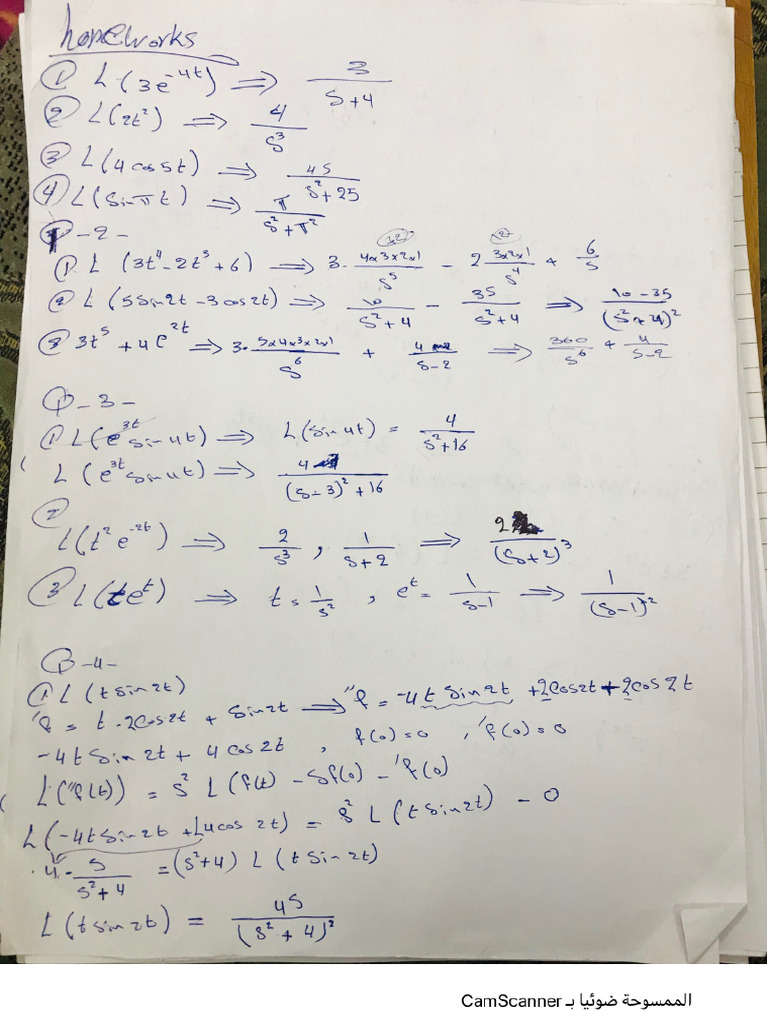 homeworks
① L(3e^-4t) ⟹ 3/(s+4)
② L(2t²) ⟹ 4/s³
③ L(4cos5t) ⟹ 4s/(s²+25)
④ L(sinπt) ⟹ π/(s²+π²)
Q-2-
① L(3t⁴-2t³+6) ⟹ 3·(4×3×2×1)/s⁵ - 2 (3×2×1)/s⁴ + 6/s
② L(5sin2t-3cos2t) ⟹ 10/(s²+4) - 3s/(s²+4) ⟹ (10-3s)/(s²+4)²
③ 3t⁵+4e^2t ⟹ 3·(5×4×3×2×1)/s⁶ + 4/(s-2) ⟹ 360/s⁶ + 4/(s-2)
Q-3-
① L(e^3t sin4t) ⟹ L(sin4t) = 4/(s²+16)
L(e^3t sin4t) ⟹ 4/((s-3)²+16)
② L(t²e^-2t) ⟹ 2/s³ , 1/(s+2) ⟹ 2/(s+2)³
③ L(te^t) ⟹ t = 1/s² , e^t = 1/(s-1) ⟹ 1/(s-1)²
Q-4-
① L(tsin2t)
'f = t·2cos2t + sin2t ⟹ "f = -4tsin2t + 2cos2t + 2cos2t
-4tsin2t + 4cos2t , f(0)=0 , 'f(0)=0
L("f(t)) = s² L(f(t)) - sf(0) - 'f(0)
L(-4tsin2t + L4cos2t) = s² L(tsin2t) - 0
4·s/(s²+4) = (s²+4) L(tsin2t)
L(tsin2t) = 4s/(s²+4)²
الممسوحة ضوئيا بـ CamScanner